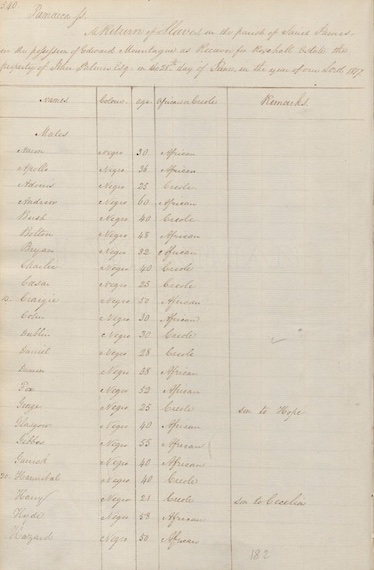 240
Jamaica ss.
A Return of Slaves in the parish of Saint James
in the possession of Edward Mountague as Receiver for Rosehall Estate the
property of John Palmer Esq. on the 28th day of June in the year of our Lord 1817.
Names Colour age African or Creole Remarks
Males
Aaron Negro 30 African
Apollo Negro 36 African
Adonis Negro 25 Creole
Andrew Negro 60 African
Brush Negro 40 Creole
Bolton Negro 48 African
Bryan Negro 32 African
Charlie Negro 40 Creole
Caesar Negro 25 Creole
10. Negro 50 African
Colin Negro 30 African
Dublin Negro 30 Creole
Daniel Negro 28 Creole
Negro 38 African
Fox Negro 32 African
George Negro 25 Creole son to Hope
Glasgow Negro 40 African
Gibbes Negro 55 African
Garrick Negro 40 African
20. Hannibal Negro 40 Creole
Harry Negro 21 Creole son to Cecelia
Hyde Negro 53 African
Hazard Negro 50 African
182